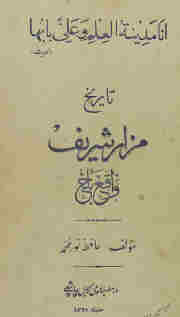 انا مدینة العلم وعلی بابها
تاریخ
مزار شریف
واقع بلخ
مولف حافظ نور محمد